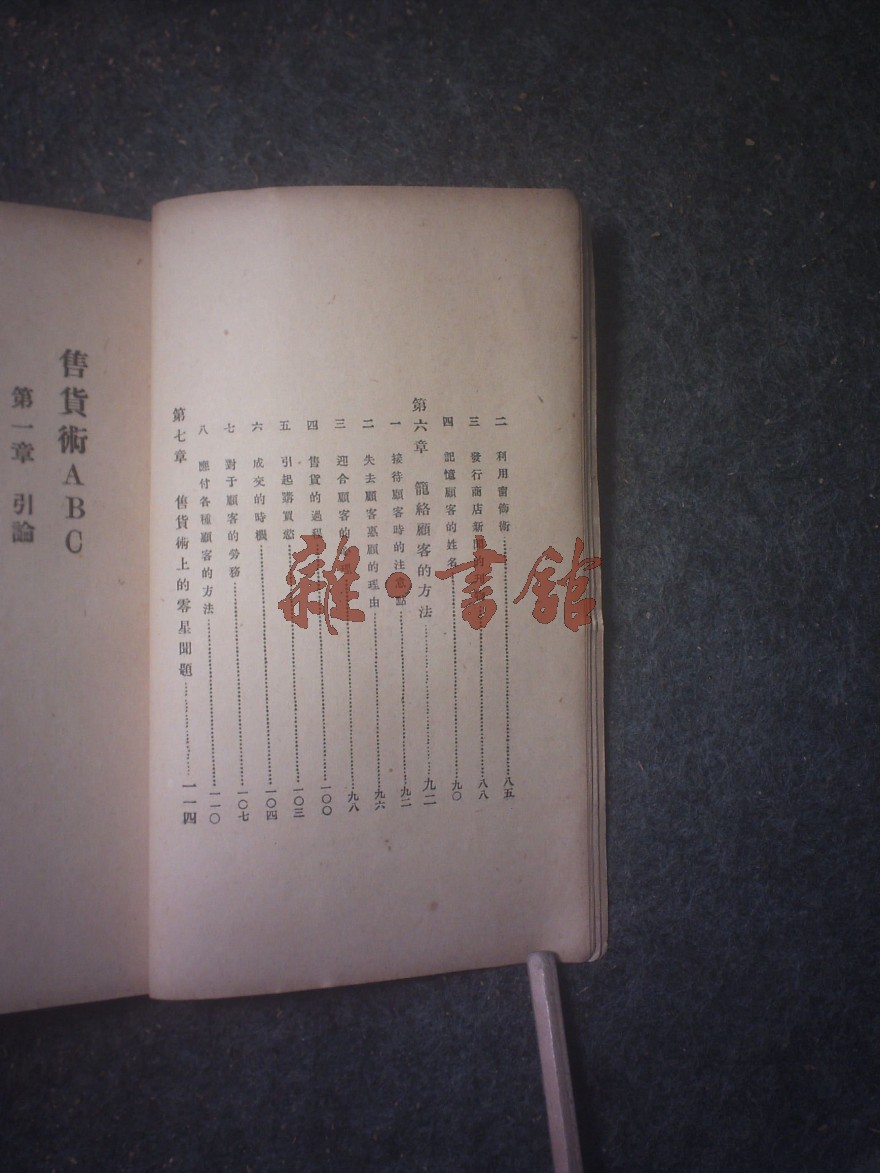 二 利用窗飾術……八五
三 發行商店新聞的……八八
四 記憶顧客的姓名……九〇
第六章 籠絡顧客的方法……九二
一 接待顧客時的注意點……九二
二 失去顧客惠顧的理由……九六
三 迎合顧客的……九八
四 售貨的過程……一〇〇
五 引起購買慾……一〇三
六 成交的時機……一〇四
七 對于顧客的勞務……一〇七
八 應付各種顧客的方法……一一〇
第七章 售貨術上的零星問題……一一四
售貨術ABC
第一章 引論
雜·書館